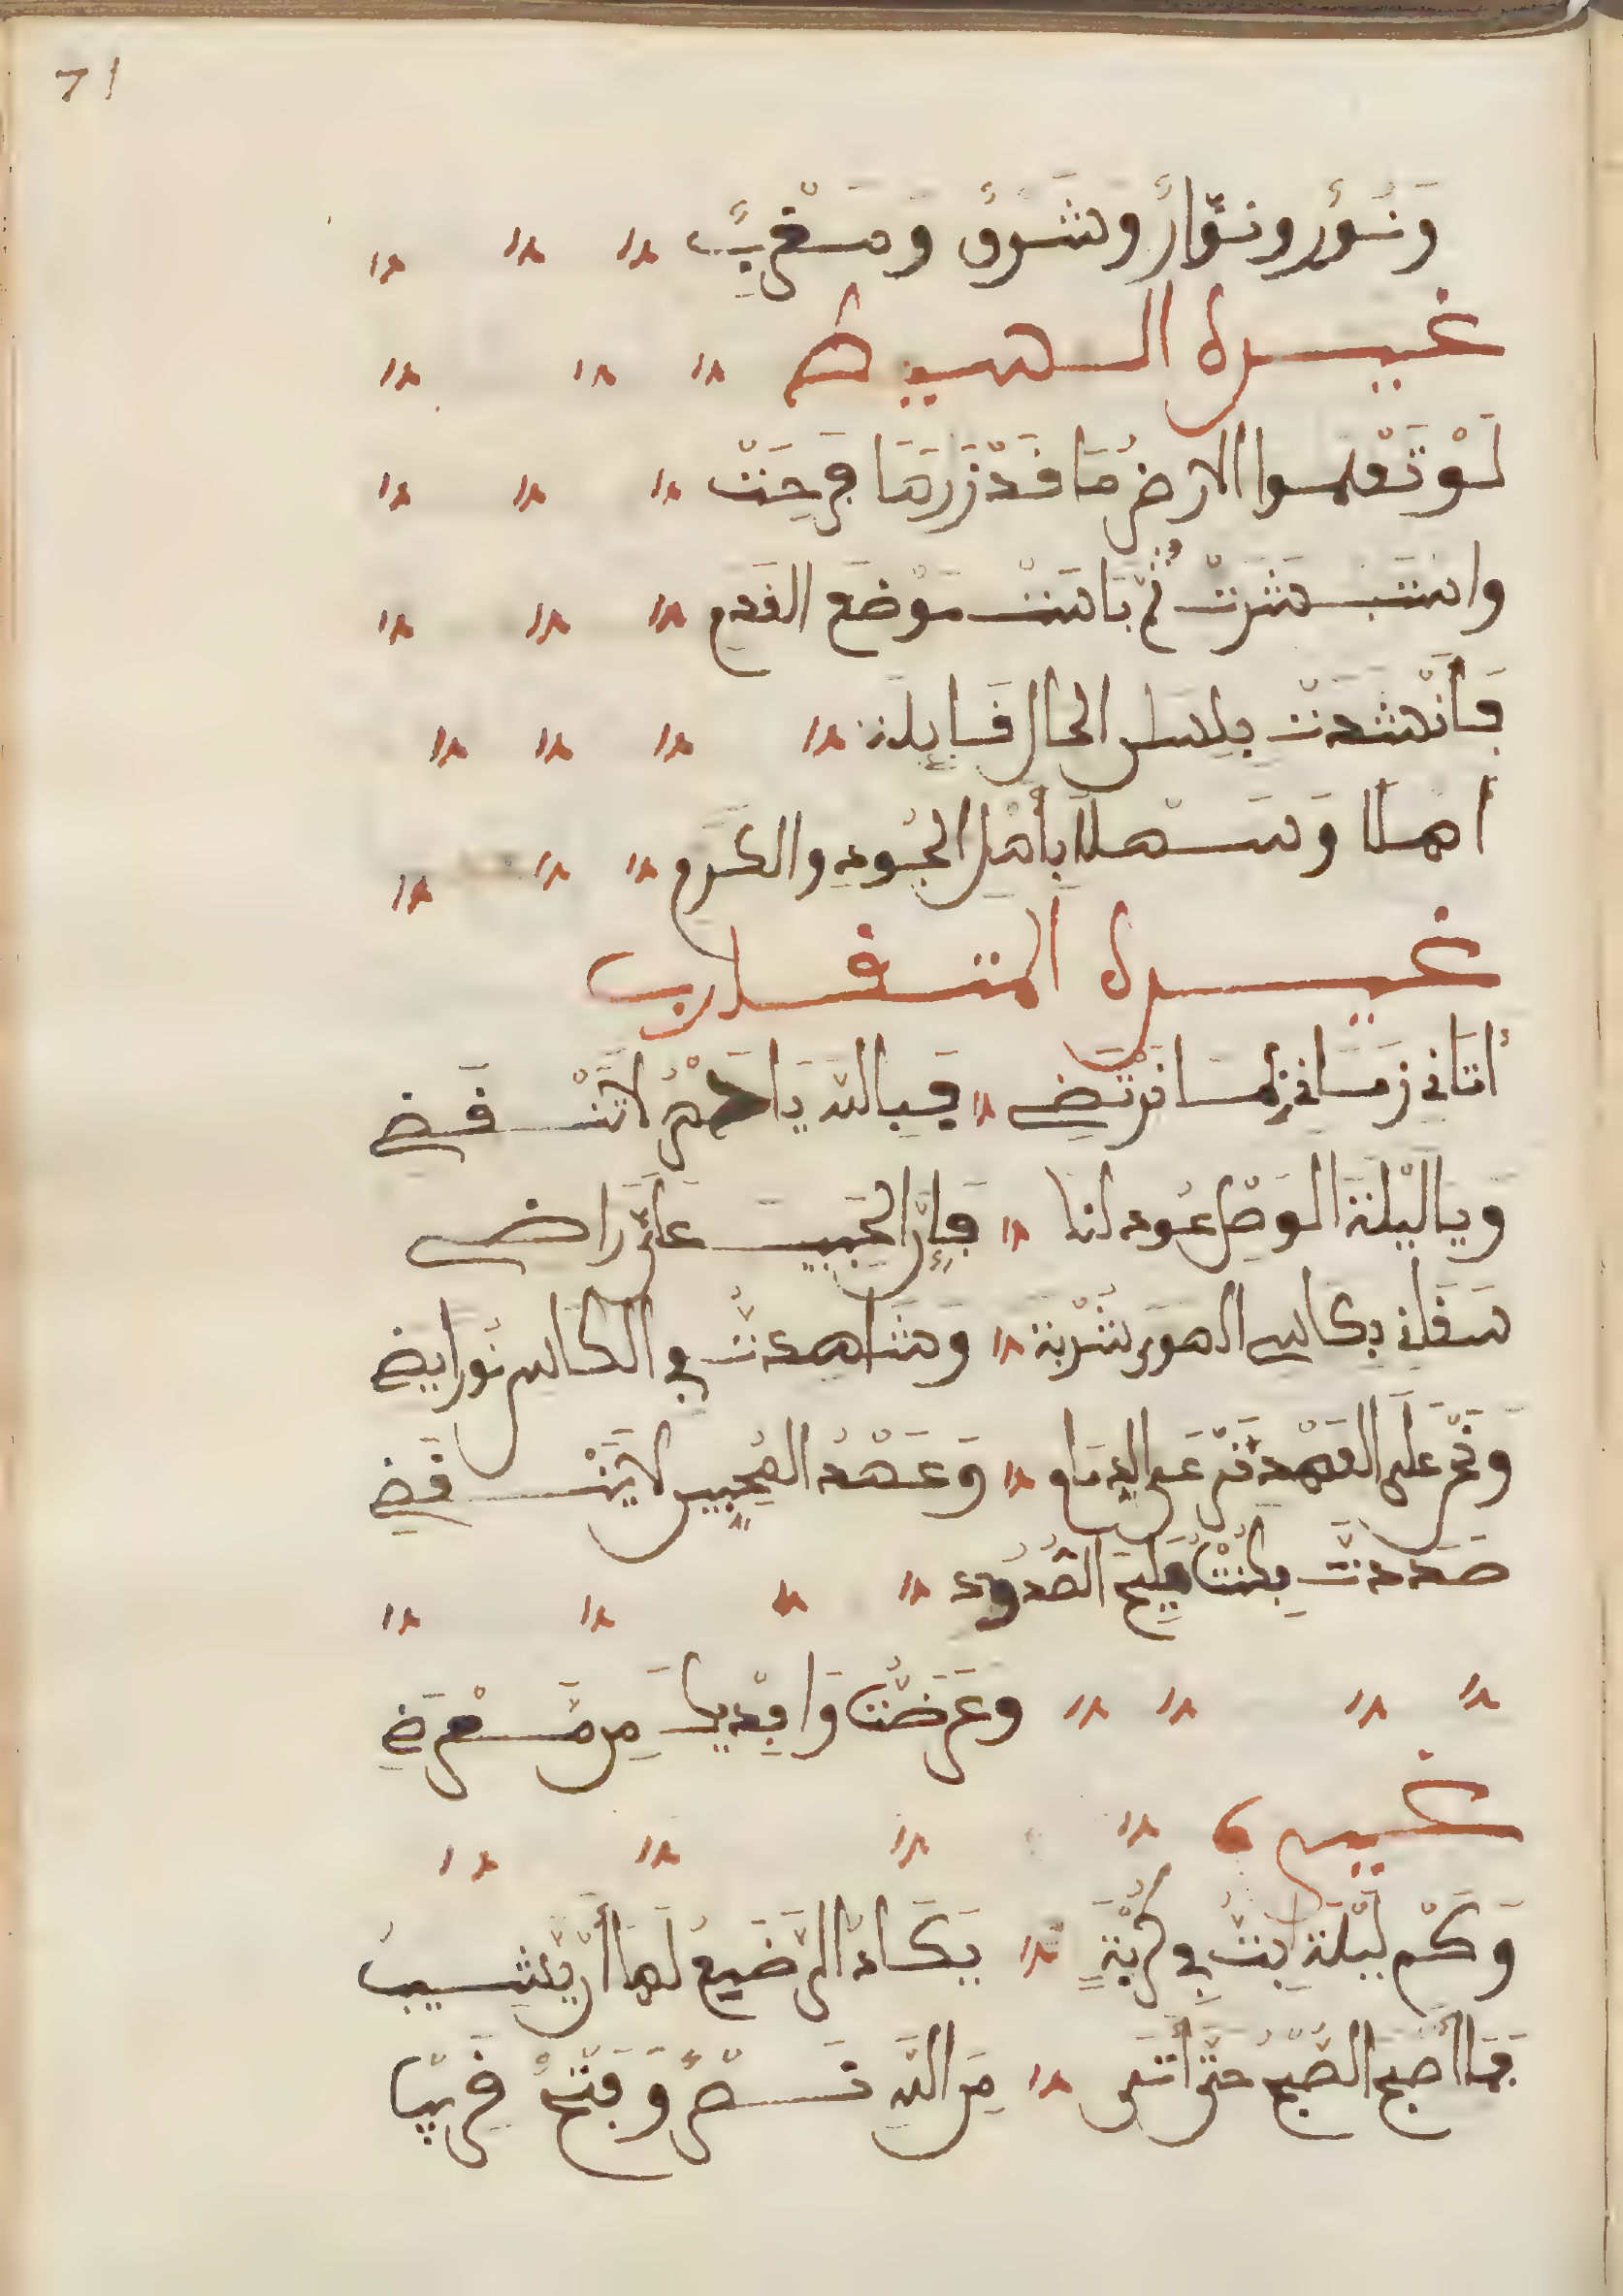 71
وَنُوۡرٌ ونُوَّارٌ وشَرۡقٌ وَمَغۡرِبٌ
غيره البسيط
لَوۡ تَعۡلموا الارضُ مَا قَدۡ زَارَهَا فَرِحَتۡ
واستبشرتۡ ثمّ باسَتۡ مَوۡضعَ القَدمِ
فأنۡشدتۡ بلِسان الحال قَايِلة
أهلًا وَسَهۡلًا بأهۡل الجُودِ والكرم
غيره المتقارب
أتاني زماني بما نرۡتضي فبالله يَا لَا تَنۡقَضي
ويا ليۡلةَ الوصۡل عُود لنا فإنّ الحَبيبَ عليَّ راضي
سَقاني بكاس الهوى شَرۡبة وشَاهدتُّ في الكاس نُورا يضي
وَنَحۡن على العَهۡد وَعَهۡدُ المُحِبين لا يَنۡقَضي
صَددتَّ فكُنتَ مليحَ الصُّدُود
وعَرضۡتَّ وَافۡديكَ مِن مُّعۡرَضِ
غيره
وَكَمۡ ليۡلةٍ بتُّ في كُرۡبَةٍ يَكَادُ الرَّضيعُ لَهَا أن يَّشيبَ
فَمَا أصۡبح الصّبۡحُ حتّى أتَى مِنَ اللهِ نَصۡرٌ وَفَتۡحٌ قَرِيبَا